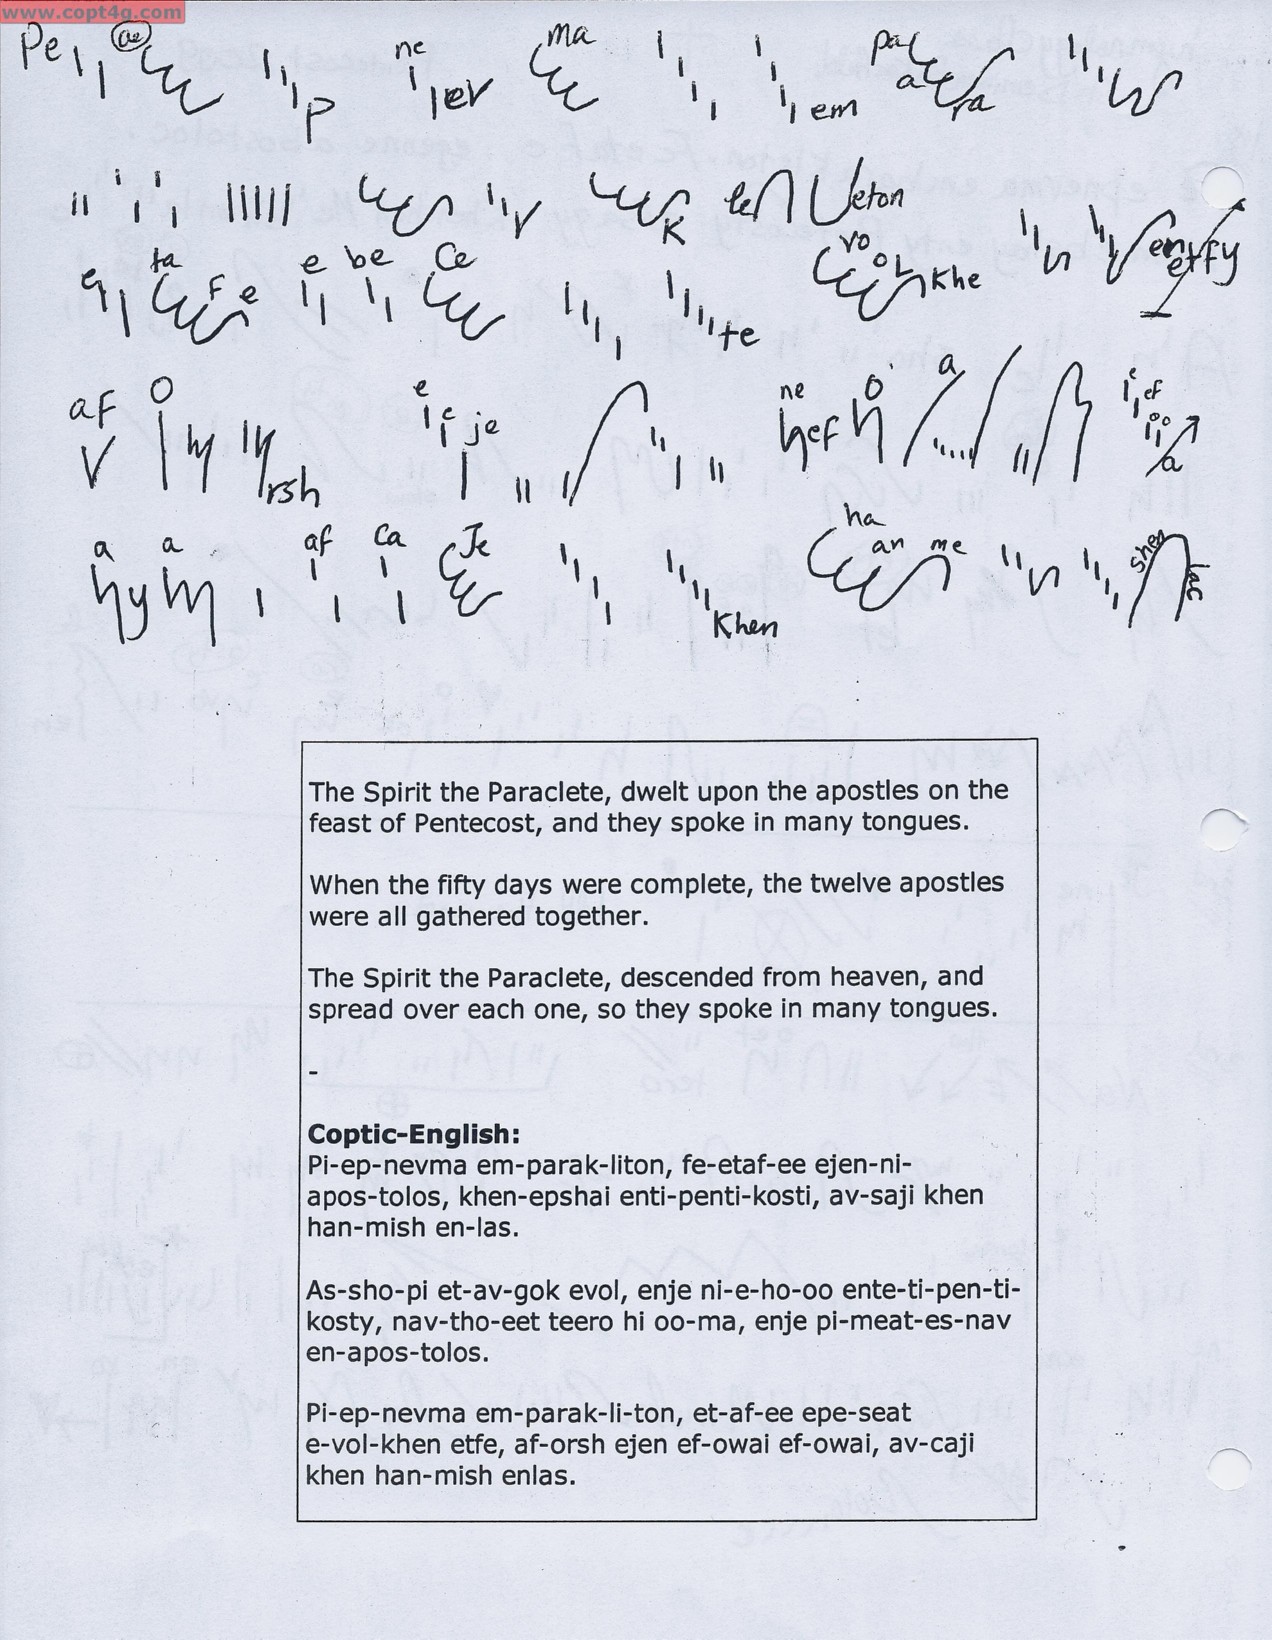 www.copt4g.com
Pe ae p ne ev ma em pa a ra
k le eton
e ta f e e be ce te vo ol khe en etfy
af o rsh e e je ne ef o a e ef oo a
a y a af ca je khen ha an me shen lac
The Spirit the Paraclete, dwelt upon the apostles on the
feast of Pentecost, and they spoke in many tongues.
When the fifty days were complete, the twelve apostles
were all gathered together.
The Spirit the Paraclete, descended from heaven, and
spread over each one, so they spoke in many tongues.
-
Coptic-English:
Pi-ep-nevma em-parak-liton, fe-etaf-ee ejen-ni-
apos-tolos, khen-epshai enti-penti-kosti, av-saji khen
han-mish en-las.
As-sho-pi et-av-gok evol, enje ni-e-ho-oo ente-ti-pen-ti-
kosty, nav-tho-eet teero hi oo-ma, enje pi-meat-es-nav
en-apos-tolos.
Pi-ep-nevma em-parak-li-ton, et-af-ee epe-seat
e-vol-khen etfe, af-orsh ejen ef-owai ef-owai, av-caji
khen han-mish enlas.